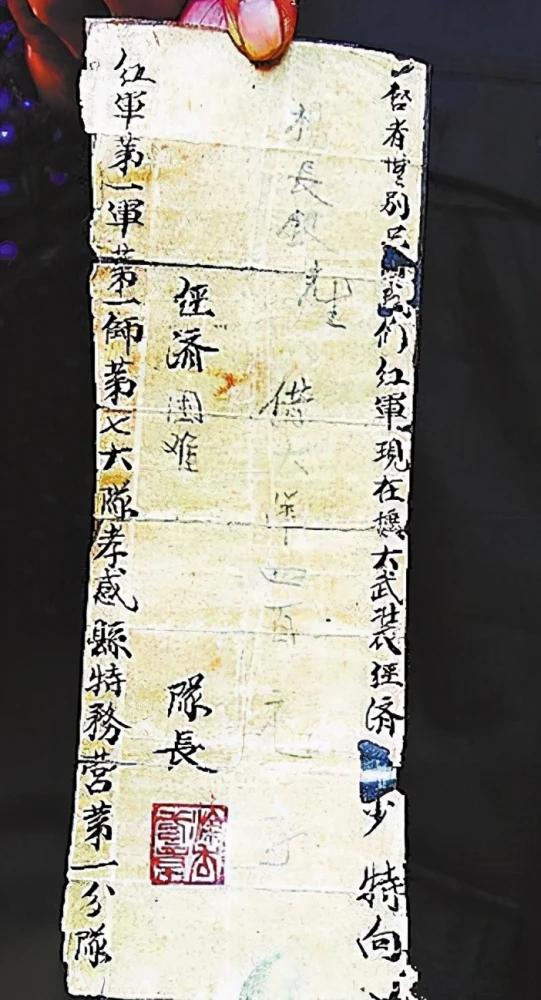 啓者 别只 们红軍現在擴大武装经济 少特向
楊長銀先生 借大洋四百元
经济困难 隊長
红軍第一軍第一師第七大隊孝感縣特務营第一分隊